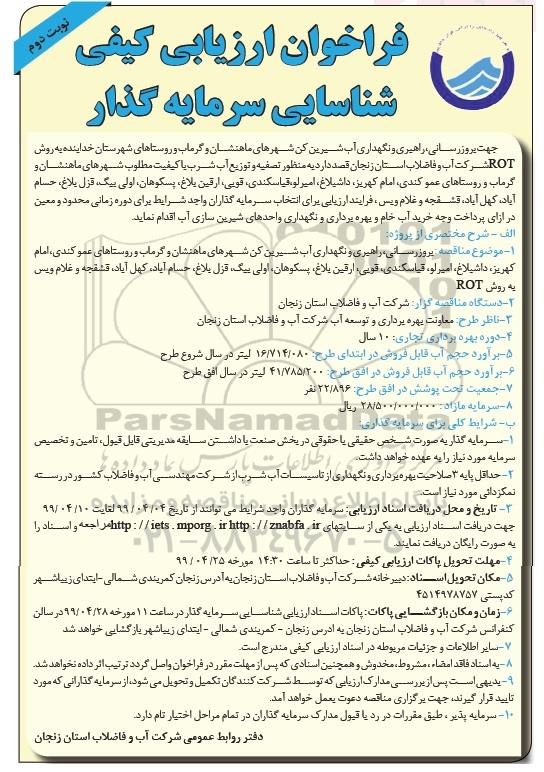 نوبت دوم
فراخوان ارزیابی کیفی
شناسایی سرمایه گذار
جهت بروزرسانی، راهبری و نگهداری آب شیرین کن شهرهای ماهنشان و گرماب و روستاهای شهرستان خدابنده به روش
ROT شرکت آب و فاضلاب استان زنجان قصد دارد به منظور تصفیه و توزیع آب شرب با کیفیت مطلوب شهرهای ماهنشان و
گرماب و روستاهای عمو کندی، امام کهریز، داشبلاغ، امیرلو، قیاسکندی، قویی، ارقین بلاغ، پسکوهان، اولی بیگ، قزل بلاغ، حسام
آباد، کهل آباد، قشقجه و غلام ویس، فرایند ارزیابی برای انتخاب سرمایه گذاران واجد شرایط برای دوره زمانی محدود و معین
در ازای پرداخت وجه خرید آب خام و بهره برداری و نگهداری واحدهای شیرین سازی آب اقدام نماید.
الف - شرح مختصری از پروژه:
۱-موضوع مناقصه: بروزرسانی، راهبری و نگهداری آب شیرین کن شهرهای ماهنشان و گرماب و روستاهای عمو کندی، امام
کهریز، داشبلاغ، امیرلو، قیاسکندی، قویی، ارقین بلاغ، پسکوهان، اولی بیگ، قزل بلاغ، حسام آباد، کهل آباد، قشقجه و غلام ویس
به روش ROT
۲-دستگاه مناقصه گزار: شرکت آب و فاضلاب استان زنجان
۳-ناظر طرح: معاونت بهره برداری و توسعه آب شرکت آب و فاضلاب استان زنجان
۴-دوره بهره برداری تجاری: ۱۰ سال
۵-برآورد حجم آب قابل فروش در ابتدای طرح: ۱۶/۷۱۴/۰۸۰ لیتر در سال شروع طرح
۶-برآورد حجم آب قابل فروش در افق طرح: ۴۱/۷۸۵/۲۰۰ لیتر در سال افق طرح
۷-جمعیت تحت پوشش در افق طرح: ۲۲/۸۹۶ نفر
۸-سرمایه مازاد: ۲۸/۵۰۰/۰۰۰/۰۰۰ ریال
ب- شرایط کلی برای سرمایه گذاری:
۱-سرمایه گذار به صورت شخص حقیقی یا حقوقی در بخش صنعت با داشتن سابقه مدیریتی قابل قبول، تامین و تخصیص
سرمایه مورد نیاز را به عهده خواهد داشت.
۲-حداقل پایه ۳ صلاحیت بهره برداری و نگهداری از تاسیسات آب شرب از شرکت مهندسی آب و فاضلاب کشور در رسته
نمکزدائی مورد نیاز است.
۳- تاریخ و محل دریافت اسناد ارزیابی: سرمایه گذاران واجد شرایط می توانند از تاریخ ۹۹/۰۴/۰۴ لغایت ۹۹/۰۴/۱۰
جهت دریافت اسناد ارزیابی به یکی از سایتهای http://iets.mporg.ir http://znabfa.ir مراجعه و اسناد را
به صورت رایگان دریافت نمایند.
۴-مهلت تحویل پاکات ارزیابی کیفی: حداکثر تا ساعت ۱۴:۳۰ مورخه ۹۹/۰۴/۲۵
۵-مکان تحویل اسناد: دبیرخانه شرکت آب و فاضلاب استان زنجان به آدرس زنجان کمربندی شمالی-ابتدای زیباشهر
کدپستی ۴۵۱۴۹۷۸۷۵۷
۶-زمان و مکان بازگشایی پاکات: پاکات اسناد ارزیابی شناسایی سرمایه گذار در ساعت ۱۱ مورخه ۹۹/۰۴/۲۸ در سالن
کنفرانس شرکت آب و فاضلاب استان زنجان به ادرس زنجان - کمربندی شمالی - ابتدای زیباشهر بازگشایی خواهد شد
۷-سایر اطلاعات و جزئیات مربوطه در اسناد ارزیابی کیفی مندرج است.
۸-به اسناد فاقد امضاء، مشروط، مخدوش و همچنین اسنادی که پس از مهلت مقرر در فراخوان واصل گردد ترتیب اثر داده نخواهد شد.
۹-بدیهی است پس از بررسی مدارک ارزیابی که توسط شرکت کنندگان تکمیل و تحویل می شود، از سرمایه گذارانی که مورد
تایید قرار گیرند، جهت برگزاری مناقصه دعوت بعمل خواهد آمد.
۱۰- سرمایه پذیر، طبق مقررات در رد یا قبول مدارک سرمایه گذاران در تمام مراحل اختیار تام دارد.
دفتر روابط عمومی شرکت آب و فاضلاب استان زنجان
ParsNamadData
۰۲۱-۸۸۳۴۹۶۷۰-۵